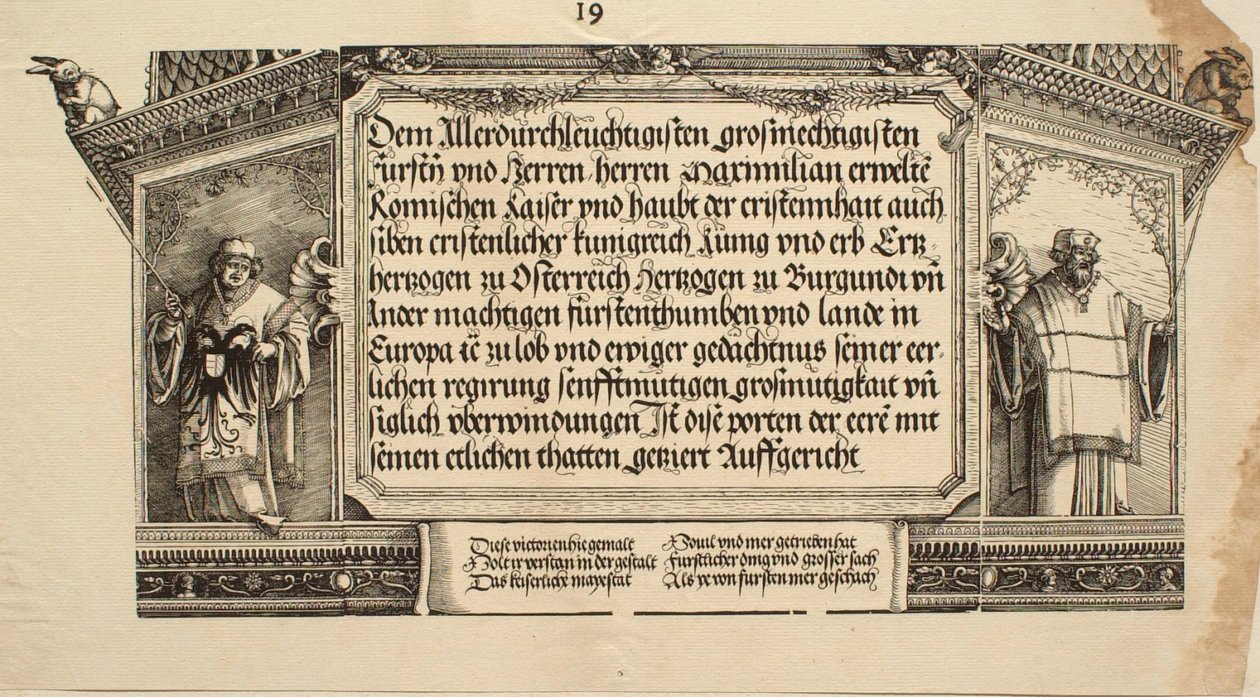 19
Dem Allerdurchleuchtigisten grosmechtigisten
fürstn̄ vnd Herren herren Maximilian erweltē
Romischen Kaiser vnd haubt der cristennhait auch
siben cristenlicher kunigreich Küng vnd erb Ertz-
hertzogen zu Osterreich Hertzogen zu Burgundi vn̄
Ander machtigen fürstenthumben vnd lande in
Europa ꝛc̄ zu lob vnd ewiger gedächtnus seiner eer-
lichen regirung senfftmütigen grosmütigkait vn̄
siglich vberwindungen Ist dise porten der eerē mit
seinen etlichen thatten getziert Auffgericht
Diese victorien hie gemalt
Wolt ir verstan in der gestalt
Das keiserliche mayestat
Souil vnd mer getrieben hat
Furstlicher ding vnd grosser sach
Als ye von fursten mer geschach